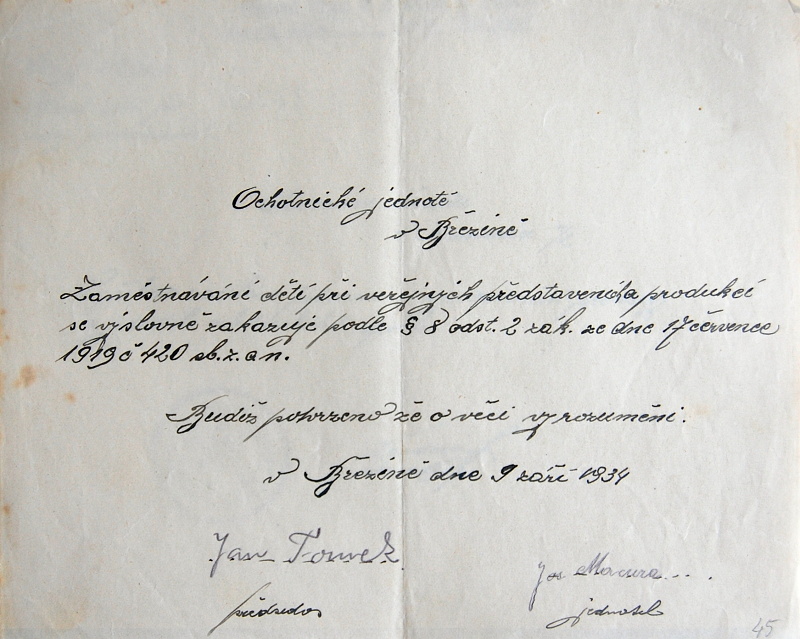 Ochotnické jednotě
v Březině
Zaměstnávání dětí při veřejných představeních a produkcí
se výslovně zakazuje podle § 8 odst. 2 zák. ze dne 17 července
1919 č 420 sb. z. a n.
Budiž potvrzeno že o věci vyrozuměni.
v Březině dne 9 září 1934
Jan Tomek
Jos Macura...
předseda
jednatel
45